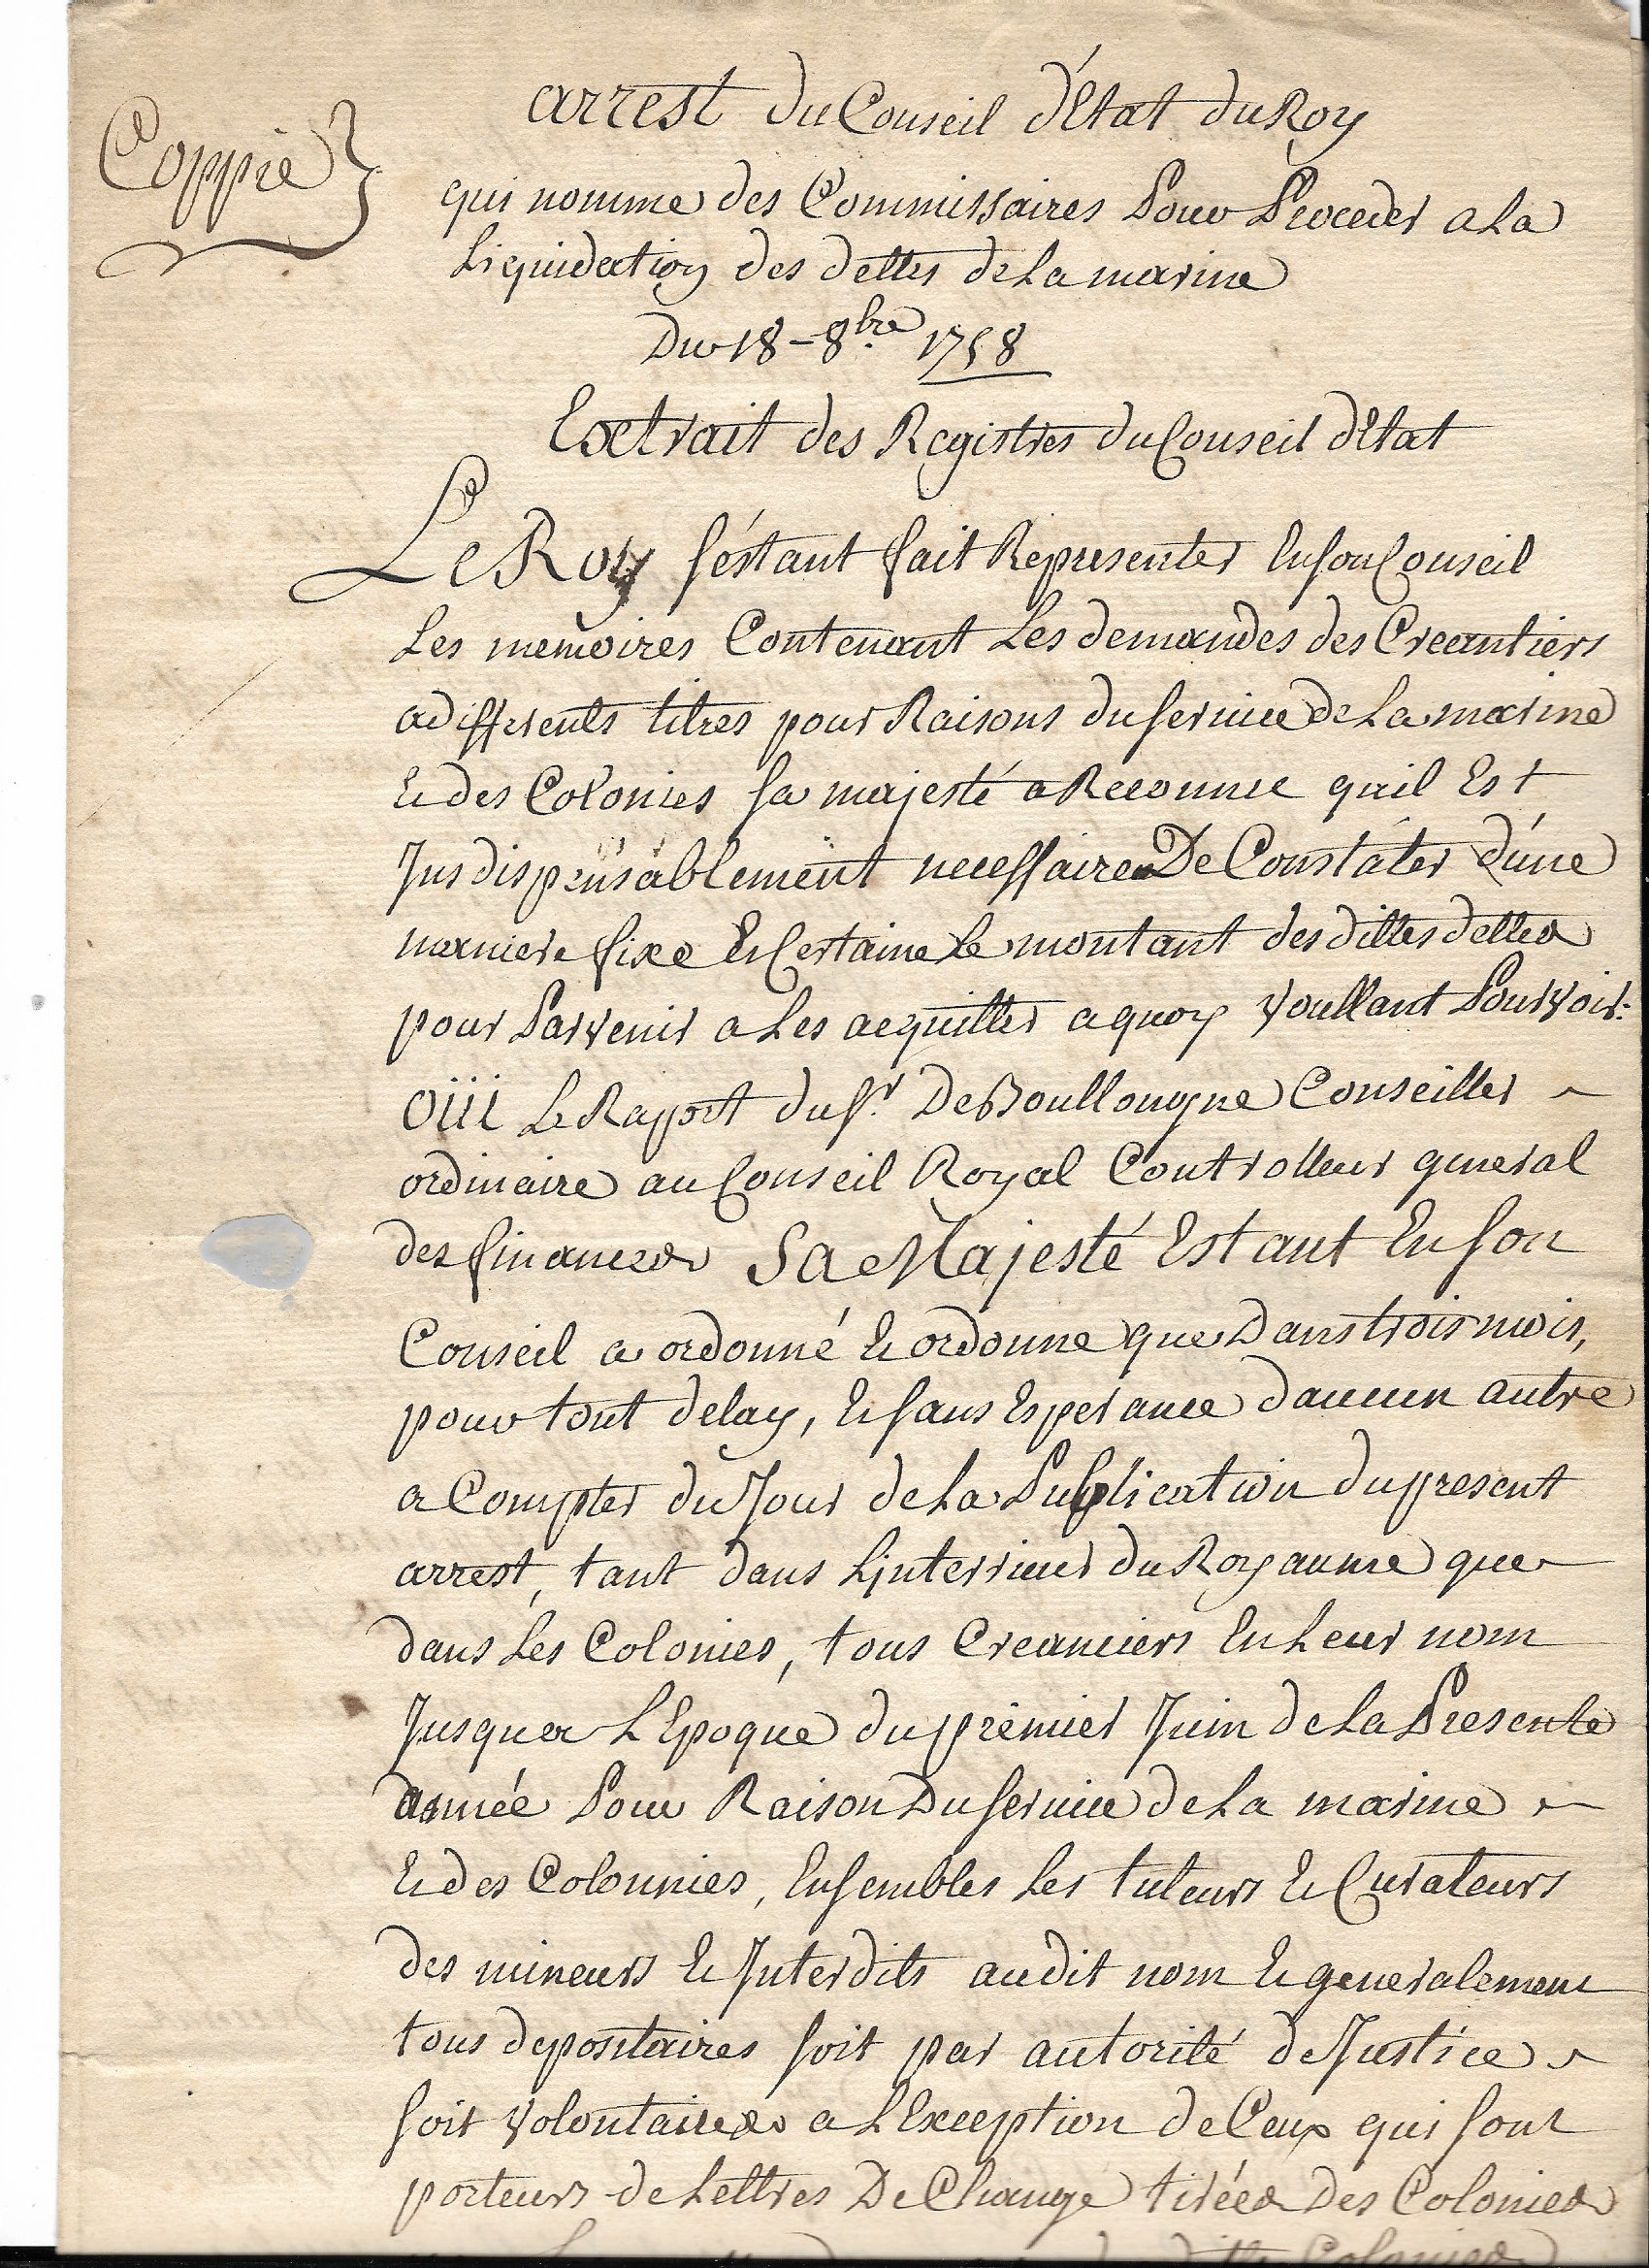 Coppie
arrest du Conseil d'Etat du Roy
qui nomme des Commissaires Pour Proceder a La
Liquidation des dettes de La marine
Du 18 - 8bre 1758
Extrait des Registres du Conseil d'Etat
Le Roy s'éstant fait Representer En son Conseil
Les memoires Contenant Les demandes des Creantiers
a differents titres pour Raisons du service de La marine
Et des Colonies sa majesté a Reconnue quil Est
Jndispensablement necessaire De Constater d'une
maniere fixe Et Certaine Le montant des dittes dettes
pour Parvenir a Les acquitter a quoy Voullant Pourvoir:
Oüi Le Raport du Sr. De Boullongne Conseiller
ordinaire au Conseil Royal Controlleur general
des finances Sa Majesté Estant En son
Conseil a ordonné Et ordonne que Dans trois mois,
pour tout delay, Et sans Esperance daucun autre
a Compter du Jour de La Publication du present
arrest, tant dans L'jnterrieur du Royaume que
dans Les Colonies, tous Creanciers En Leur nom
Jusqua L'Epoque du premier Juin de La Presente
année Pour Raison Du service de La marine
Et des Colonnies, Ensembles Les tuteurs Et Curateurs
des mineurs Et Jnterdits audit nom Et generalement
tous depositaires soit par autorité de Justice
soit Volontaires a L'Exception de Ceux qui sont
porteurs de Lettres De Change tirées Des Colonies